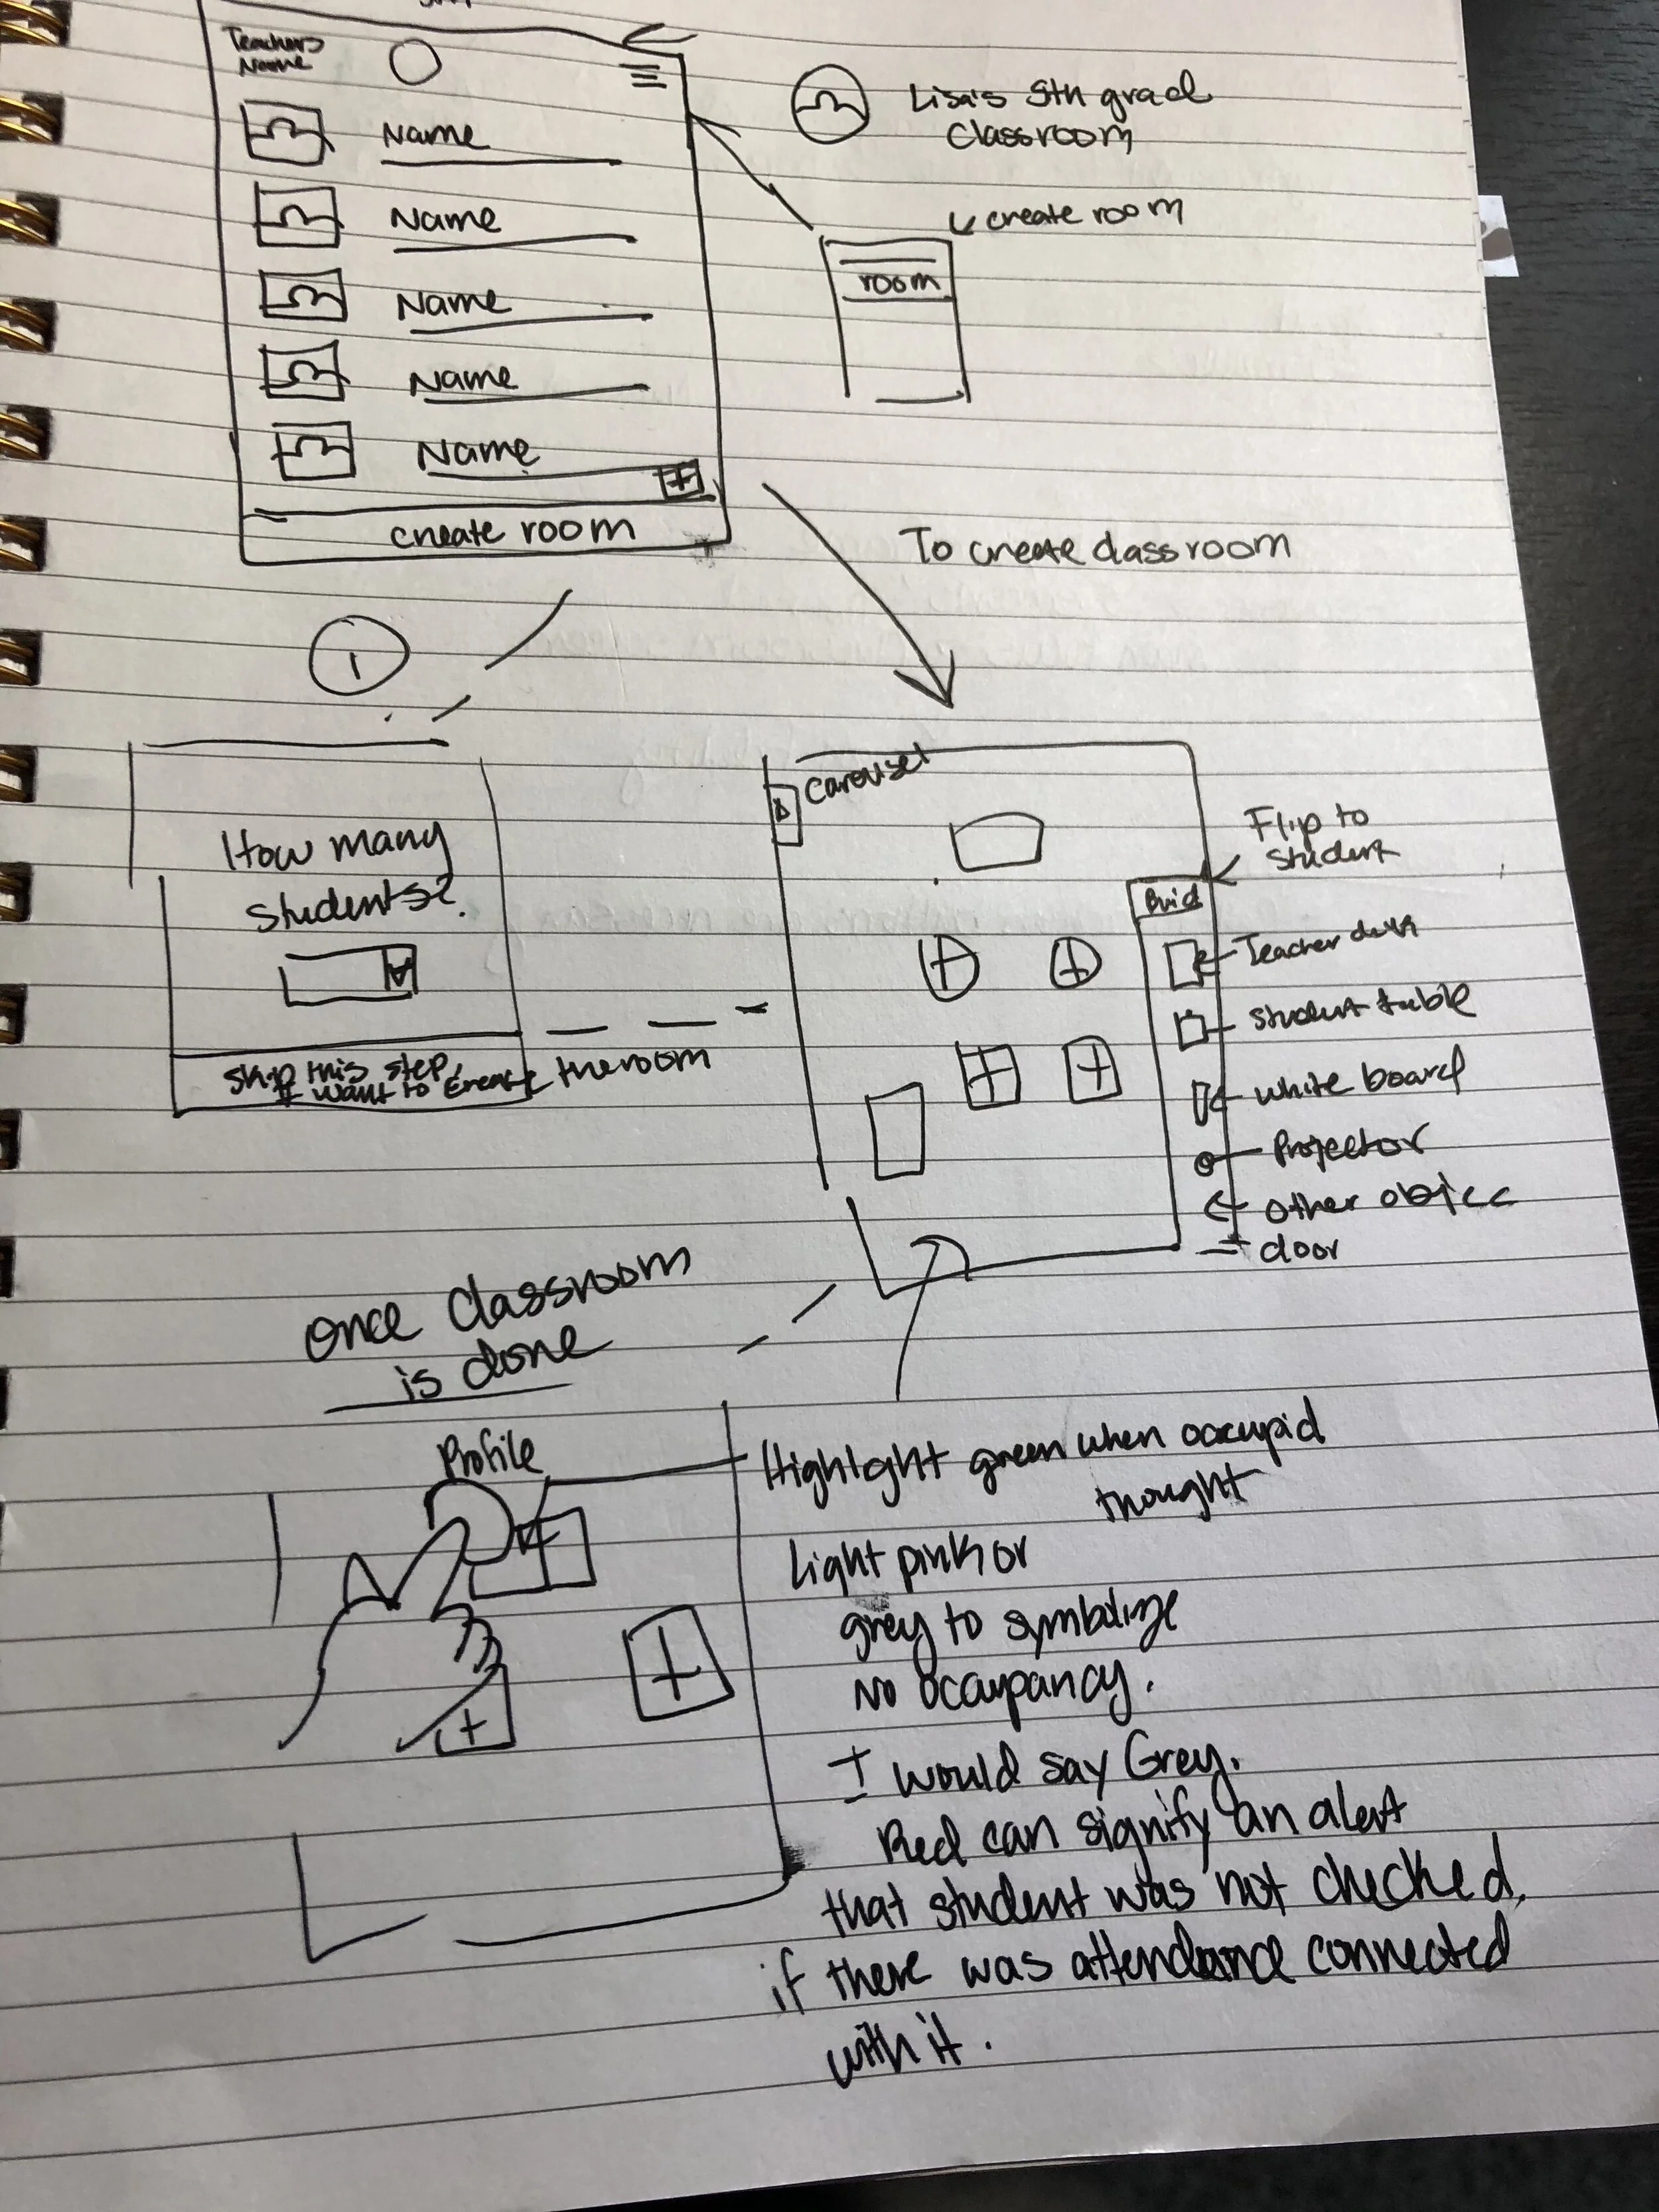 Teachers
Name
Name
Name
Name
Name
Name
create room
Lisa's 5th grad
Classroom
create room
room
To create classroom
1
How many
students?
Skip this step,
If want to create the room
Carousel
Flip to
student
Build
Teacher desk
Student table
White board
Projector
Other objec
door
Once Classroom
is done
Profile
Highlight green when occupid
thought
Light pink or
grey to symbolize
No occupancy.
I would say Grey.
Red can signify an alert
that student was not checked,
if there was attendance connected
with it.